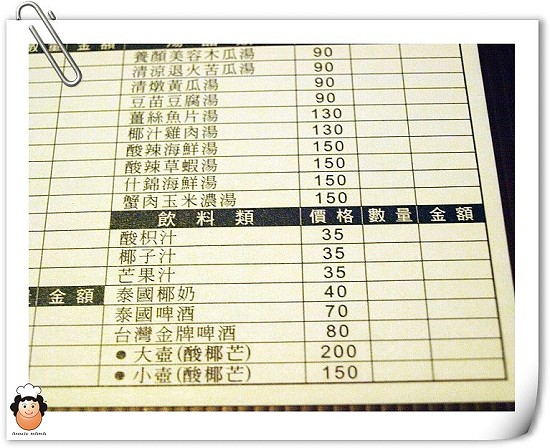 數量 金額 湯品類
養顏美容木瓜湯 90
清涼退火苦瓜湯 90
清燉黃瓜湯 90
豆苗豆腐湯 90
薑絲魚片湯 130
椰汁雞肉湯 130
酸辣海鮮湯 150
酸辣草蝦湯 150
什錦海鮮湯 150
蟹肉玉米濃湯 150
飲料類 價格 數量 金額
酸枳汁 35
椰子汁 35
芒果汁 35
金額 泰國椰奶 40
泰國啤酒 70
台灣金牌啤酒 80
●大壺(酸椰芒) 200
●小壺(酸椰芒) 150